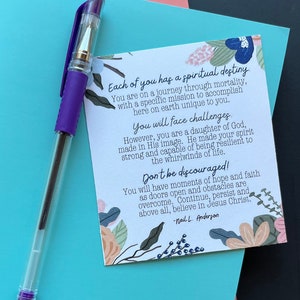 Each of you has a spiritual destiny.
You are on a journey through mortality,
with a specific mission to accomplish
here on earth unique to you.
You will face challenges.
However, you are a daughter of God,
made in His image. He made your spirit
strong and capable of being resilient to
the whirlwinds of life.
Don't be discouraged!
You will have moments of hope and faith
as doors open and obstacles are
overcome. Continue, persist and
above all, believe in Jesus Christ.
-Neil L. Anderson